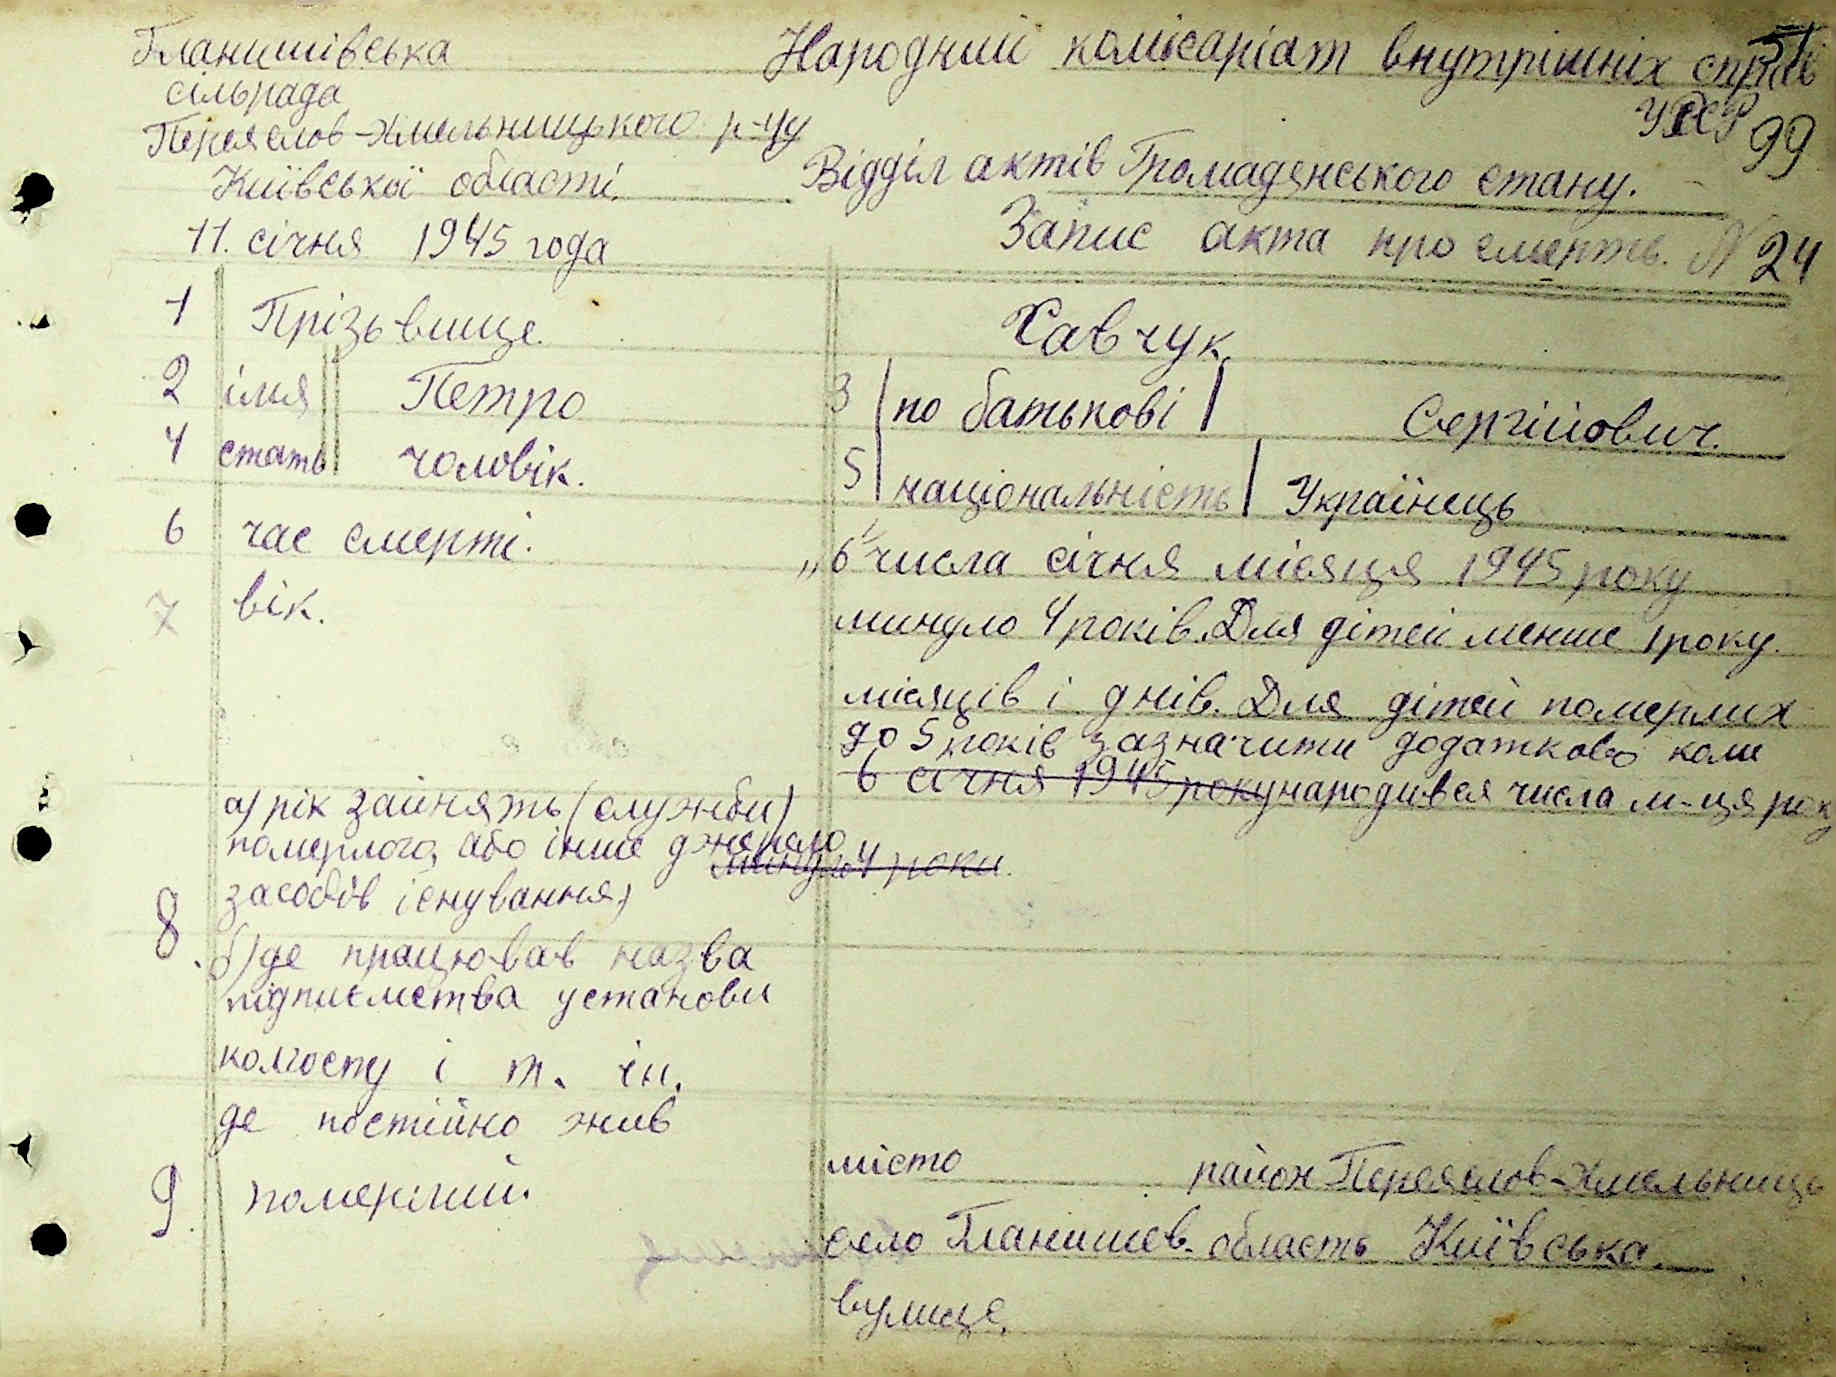 Гланишівська
сільрада
Переяслов-Хмельницького р-ну
Київської області.
11. січня 1945 года
Народний комісаріат внутрішніх справ
51
УРСР
99
Відділ актів Громадянського стану.
Запис акта про смерть. N 24
1 Прізьвище. Хавчук.
2 імя Петро 3 по батькові Сергійович.
4 стать чоловік. 5 національність Українець
6 час смерті. „6" числа січня місяця 1945 року
7 вік. минуло 4 років. Для дітей менше 1 року.
місяців і днів. Для дітей померлих
до 5 років зазначити додатково коли
6 січня 1945 року народився числа м-ця року
а) рік занять (служби)
померлого, або інше джерело
минуло 4 роки.
засобів існування)
8 б) де працював назва
підпиємства установи
колгоспу і т. ін.
де постійно жив
9. померлий.
місто район Переяслов-Хмельниць
село Гланишев. область Київська.
вулиця.